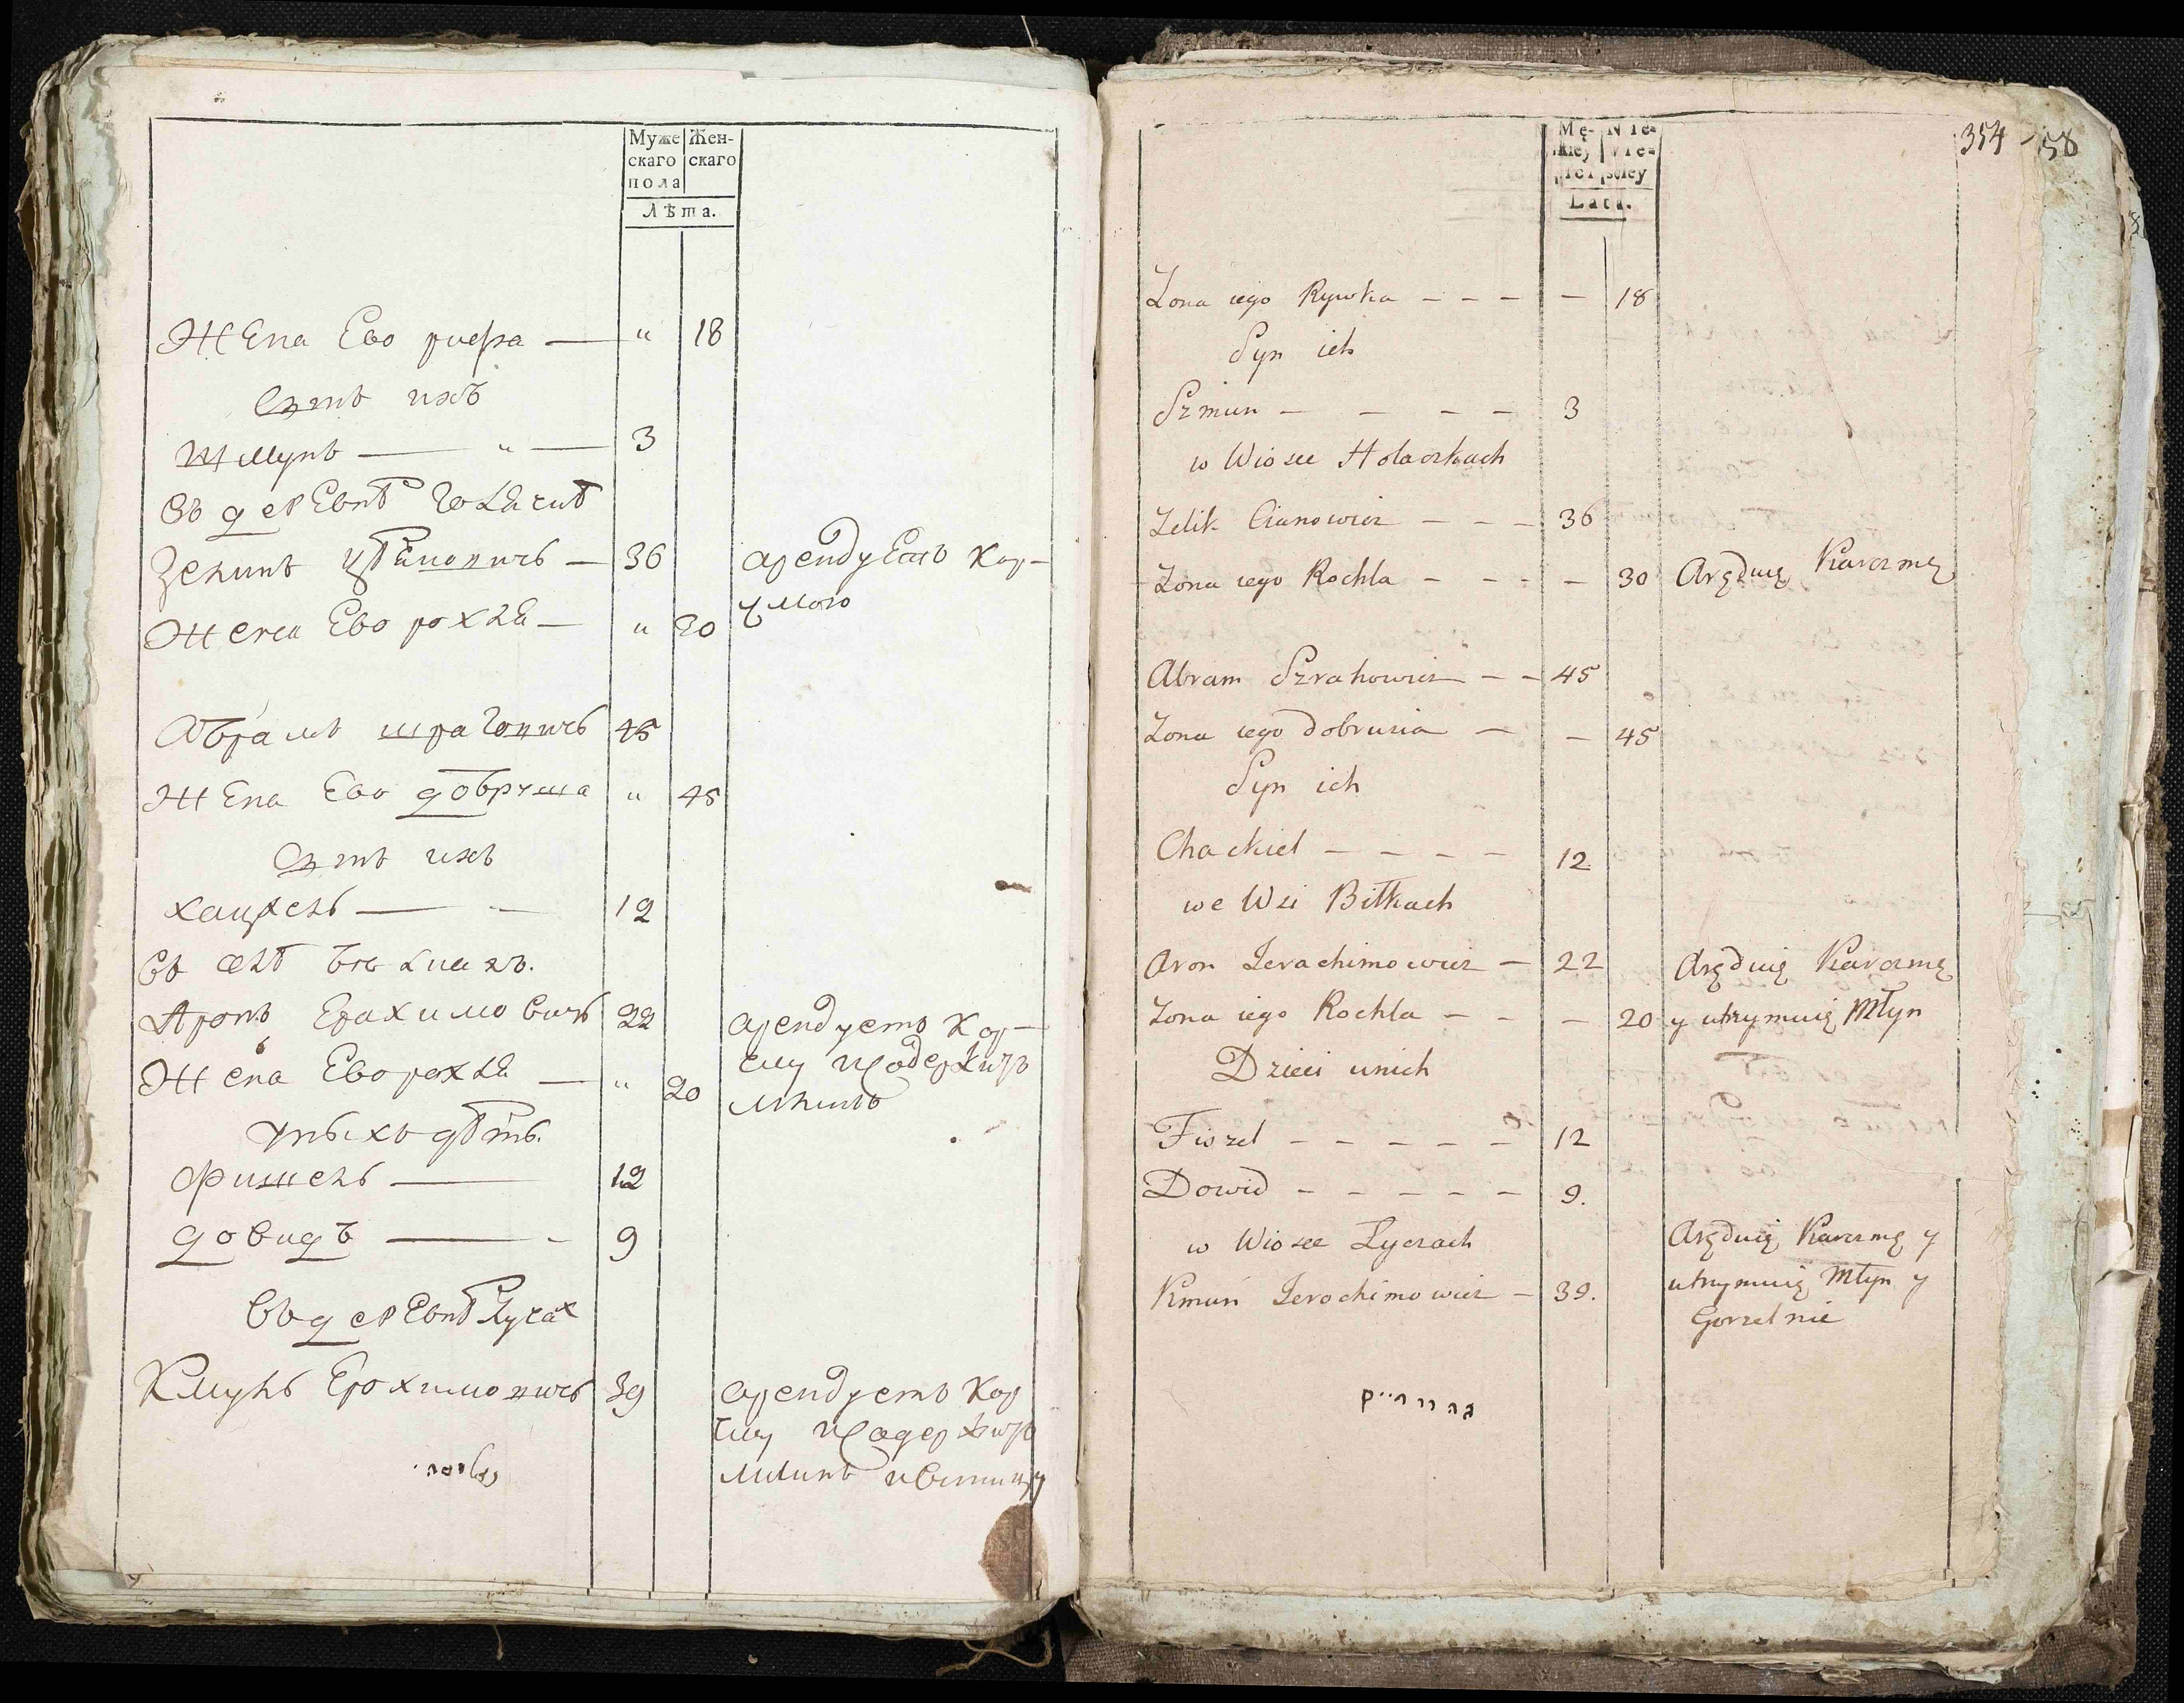 Муже Жен-
скаго скаго
пола
Лѣта.
Жена Ево рифка — " 18
Сынъ ихъ
Шмунъ — " — 3
Въ деревнѣ Голачкѣ
Зеликъ Цѣмновичъ — 36 арендуетъ Кор-
чмою
Жена Ево рохля — " 30
Абрамъ шраговичъ 45
Жена Ево добруша " 45
Сынъ ихъ
хацкель — 12
Въ селѣ
Аронъ Ерахимовичъ 22 арендуетъ Кор-
чму исодержитъ
Жена Ево рохля — " 20
унихъ дѣти.
Фишель — 12
довидъ — - 9
Въ деревнѣ Лучах
Кмунъ Ерохимовичъ 39 арендуетъ Кор
чму исодержитъ
354 58
Mę- Nie-
skiey wie-
płci sciey
Lata.
Zona iego Rywka - - - - 18
Syn ich
Szmun - - - - 3
w Wiosce Holaczkach
Zelik Cianowicz - - - 36
Zona iego Rochla - - - - 30 Aręduię Karczmę
Abram Szrahowicz - - 45
Zona iego Dobrusia - - 45
Syn ich
Chackiel - - - - 12
we Wsi Bitkach
Aron Jerachimowicz - 22 Aręduię Karczmę
Zona iego Rochla - - - 20 y utrzymuię Młyn
Dzieci unich
Fiszel - - - - - 12
Dowid - - - - - 9.
w Wiosce Łyczach Aręduię Karczmę y
Kmuń Jerochimowicz - 39. utrzymuię Młyn y
Gorzelnie